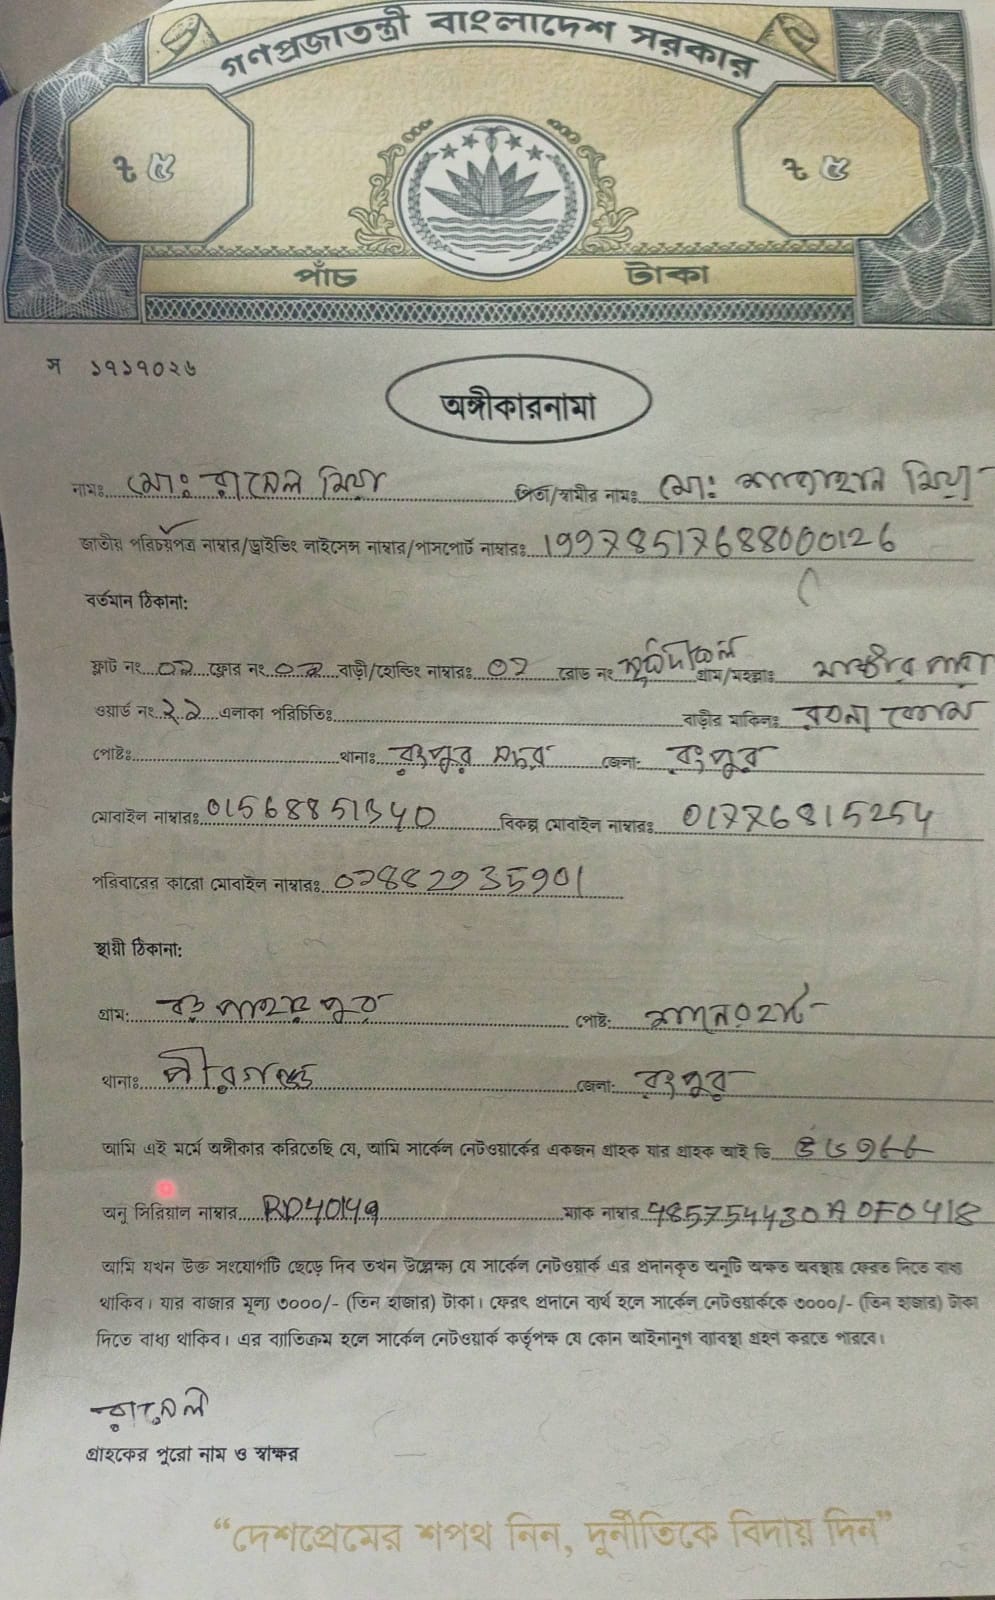 গণপ্রজাতন্ত্রী বাংলাদেশ সরকার
৳ ৫ ৳ ৫
পাঁচ টাকা
স ১৭১৭০২৬
অঙ্গীকারনামা
নামঃ মোঃ রাসেল মিয়া পিতা/স্বামীর নামঃ মোঃ শাজাহান মিয়া
জাতীয় পরিচয়পত্র নাম্বার/ড্রাইভিং লাইসেন্স নাম্বার/পাসপোর্ট নাম্বারঃ 19978517688000126
বর্তমান ঠিকানা:
ফ্লাট নং ০২ ফ্লোর নং ০২ বাড়ী/হোল্ডিং নাম্বারঃ ০২ রোড নং গ্রাম/মহল্লাঃ মাস্টার পাড়া
ওয়ার্ড নং ২১ এলাকা পরিচিতিঃ বাড়ীর মালিকঃ
পোষ্টঃ থানাঃ রংপুর সদর জেলা: রংপুর
মোবাইল নাম্বারঃ 01568851340 বিকল্প মোবাইল নাম্বারঃ 01776815254
পরিবারের কারো মোবাইল নাম্বারঃ
স্থায়ী ঠিকানা:
গ্রাম: পোষ্ট: শানেরহাট
থানাঃ পীরগঞ্জ জেলা: রংপুর
আমি এই মর্মে অঙ্গীকার করিতেছি যে, আমি সার্কেল নেটওয়ার্কের একজন গ্রাহক যার গ্রাহক আই ডি
অনু সিরিয়াল নাম্বার RD40149 ম্যাক নাম্বার 485754430A0F0418
আমি যখন উক্ত সংযোগটি ছেড়ে দিব তখন উল্লেক্ষ্য যে সার্কেল নেটওয়ার্ক এর প্রদানকৃত অনুটি অক্ষত অবস্থায় ফেরত দিতে বাধ্য
থাকিব। যার বাজার মূল্য ৩০০০/- (তিন হাজার) টাকা। ফেরৎ প্রদানে ব্যর্থ হলে সার্কেল নেটওয়ার্ককে ৩০০০/- (তিন হাজার) টাকা
দিতে বাধ্য থাকিব। এর ব্যাতিক্রম হলে সার্কেল নেটওয়ার্ক কর্তৃপক্ষ যে কোন আইনানুগ ব্যাবস্থা গ্রহণ করতে পারবে।
রাসেল
গ্রাহকের পুরো নাম ও স্বাক্ষর
“দেশপ্রেমের শপথ নিন, দুর্নীতিকে বিদায় দিন”